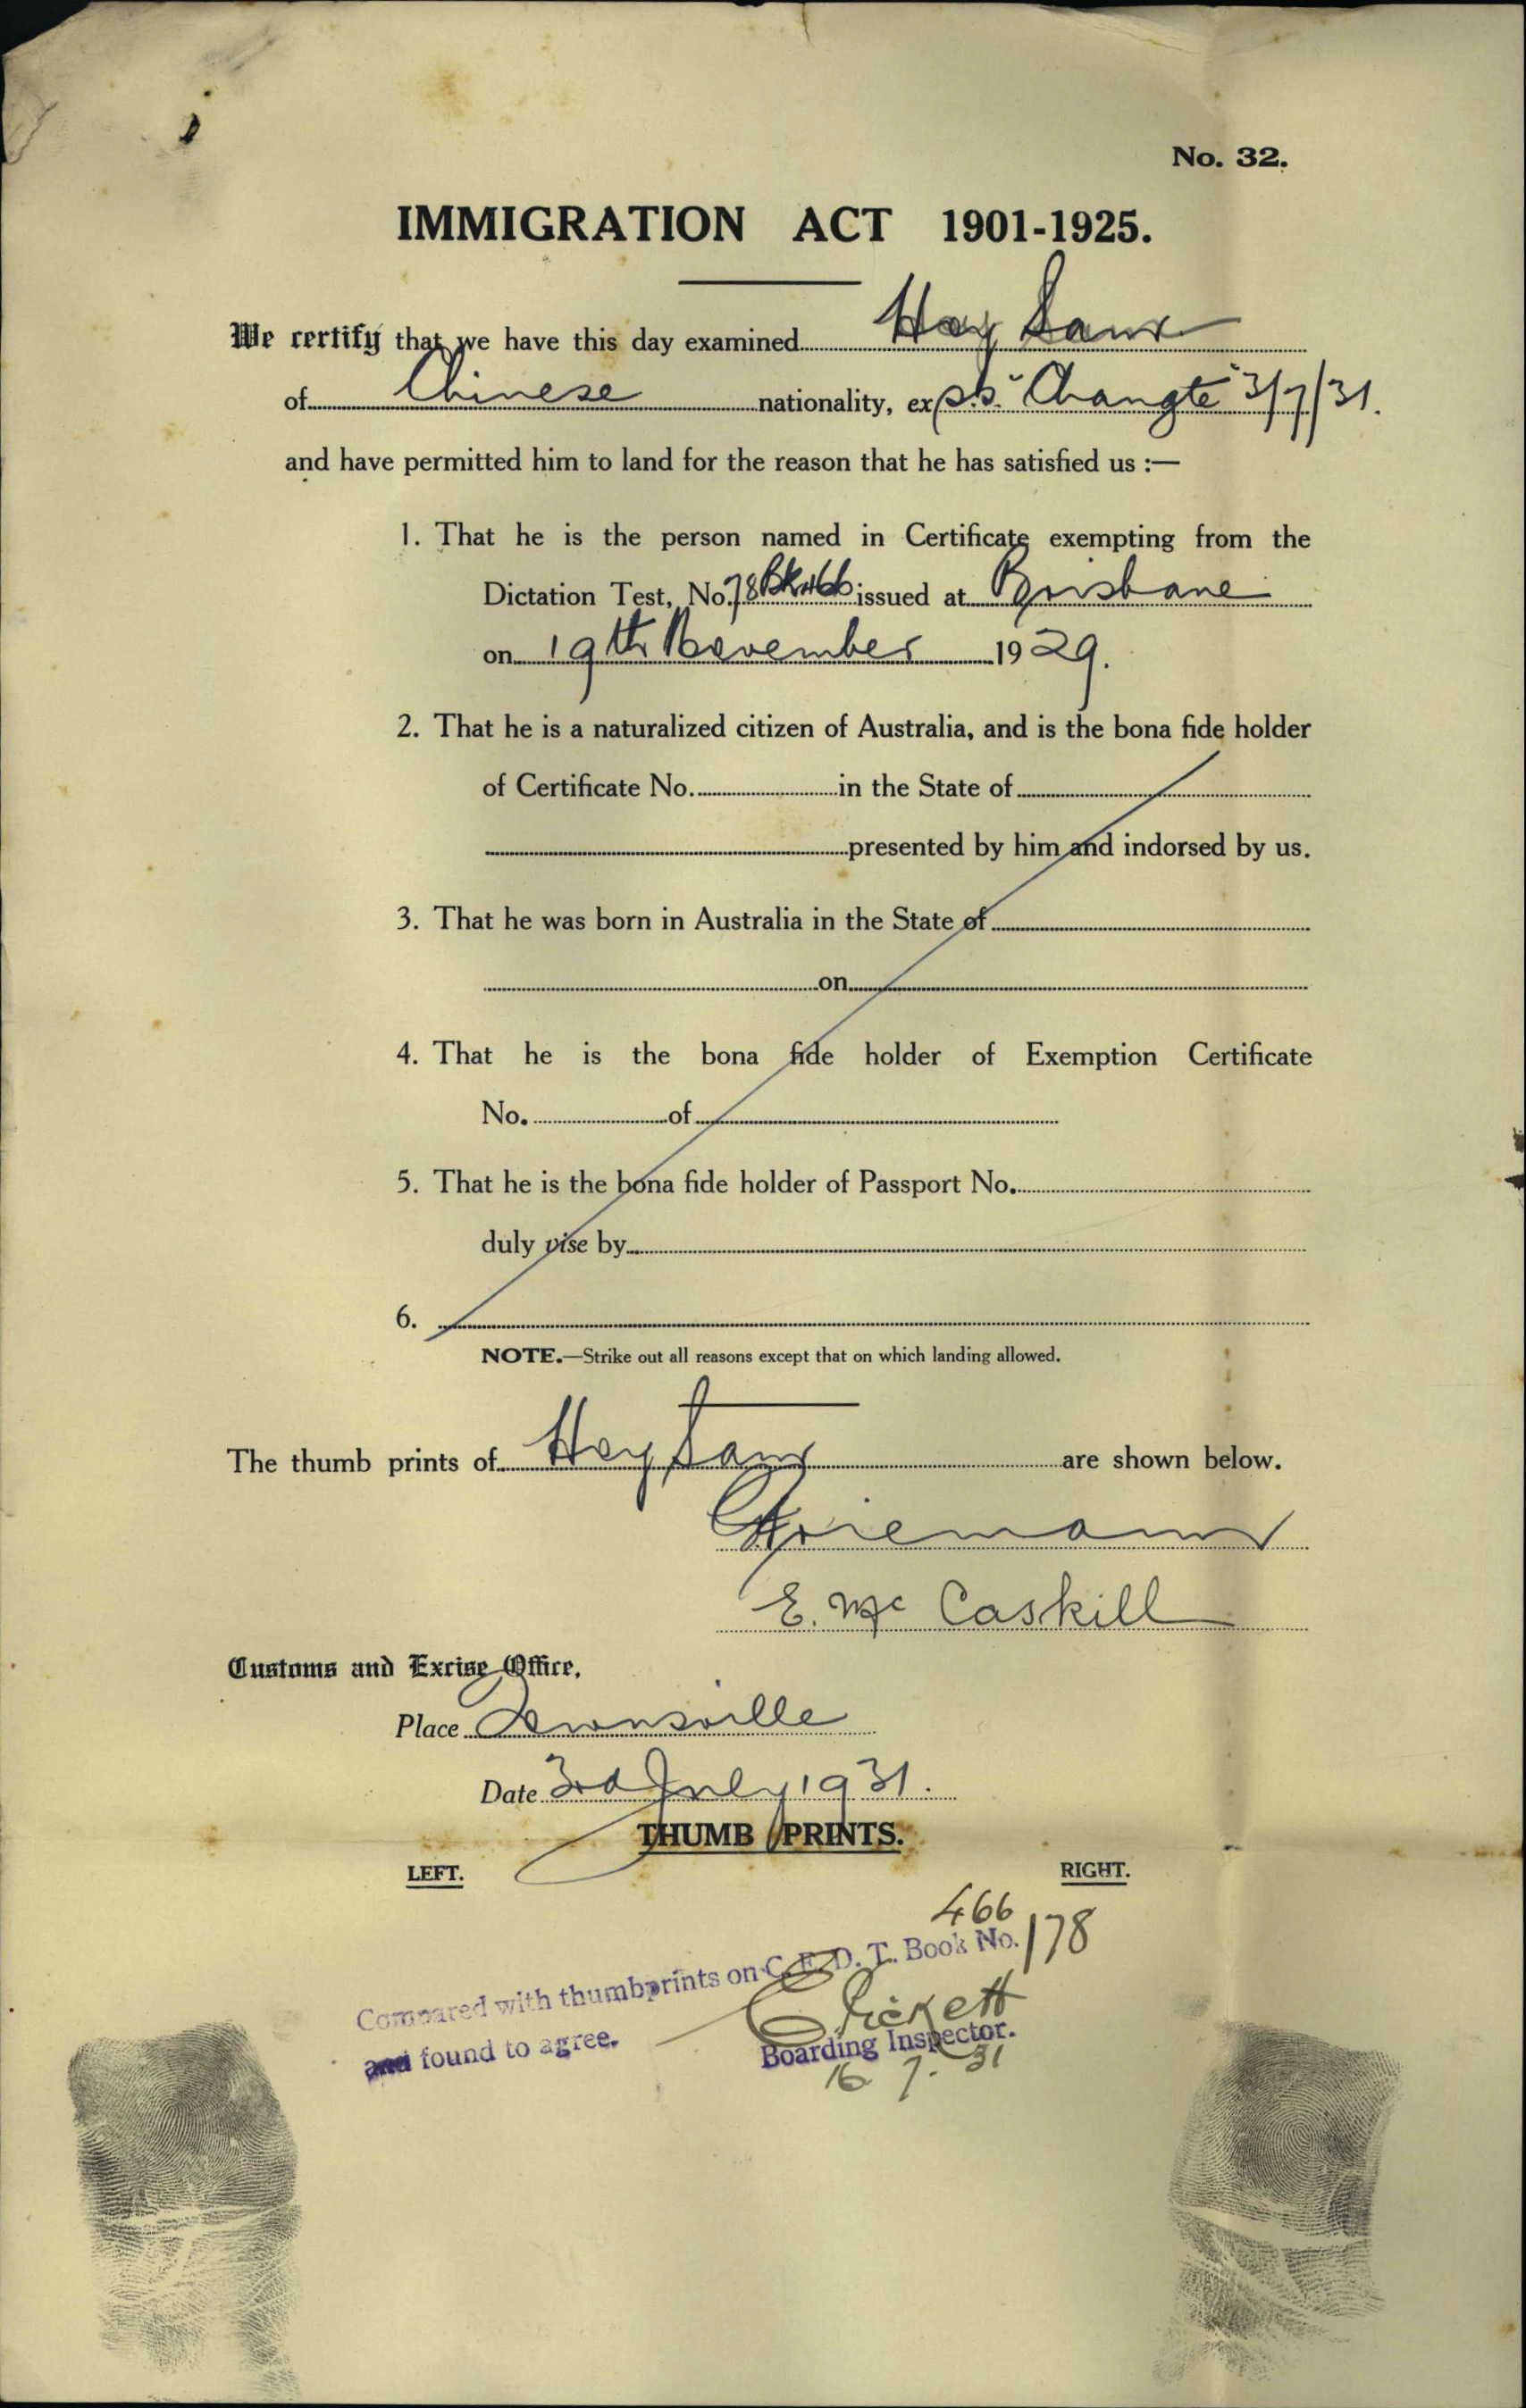 No. 32.
IMMIGRATION ACT 1901-1925.
We certify that we have this day examined Hay Sam
of Chinese nationality, ex s.s. "Changte" 3/7/31.
and have permitted him to land for the reason that he has satisfied us :—
1. That he is the person named in Certificate exempting from the
Dictation Test, No. 78 Bk 466 issued at Brisbane
on 19th November 1929.
2. That he is a naturalized citizen of Australia, and is the bona fide holder
of Certificate No. in the State of
presented by him and indorsed by us.
3. That he was born in Australia in the State of
on
4. That he is the bona fide holder of Exemption Certificate
No. of
5. That he is the bona fide holder of Passport No.
duly vise by
6.
NOTE.—Strike out all reasons except that on which landing allowed.
The thumb prints of Hay Sam are shown below.
E. McCaskill
Customs and Excise Office,
Place Townsville
Date 3rd July 1931.
THUMB PRINTS.
LEFT. RIGHT.
466
Compared with thumbprints on C.E.D.T. Book No. /78
and found to agree.
Pickett
Boarding Inspector.
16 7. 31